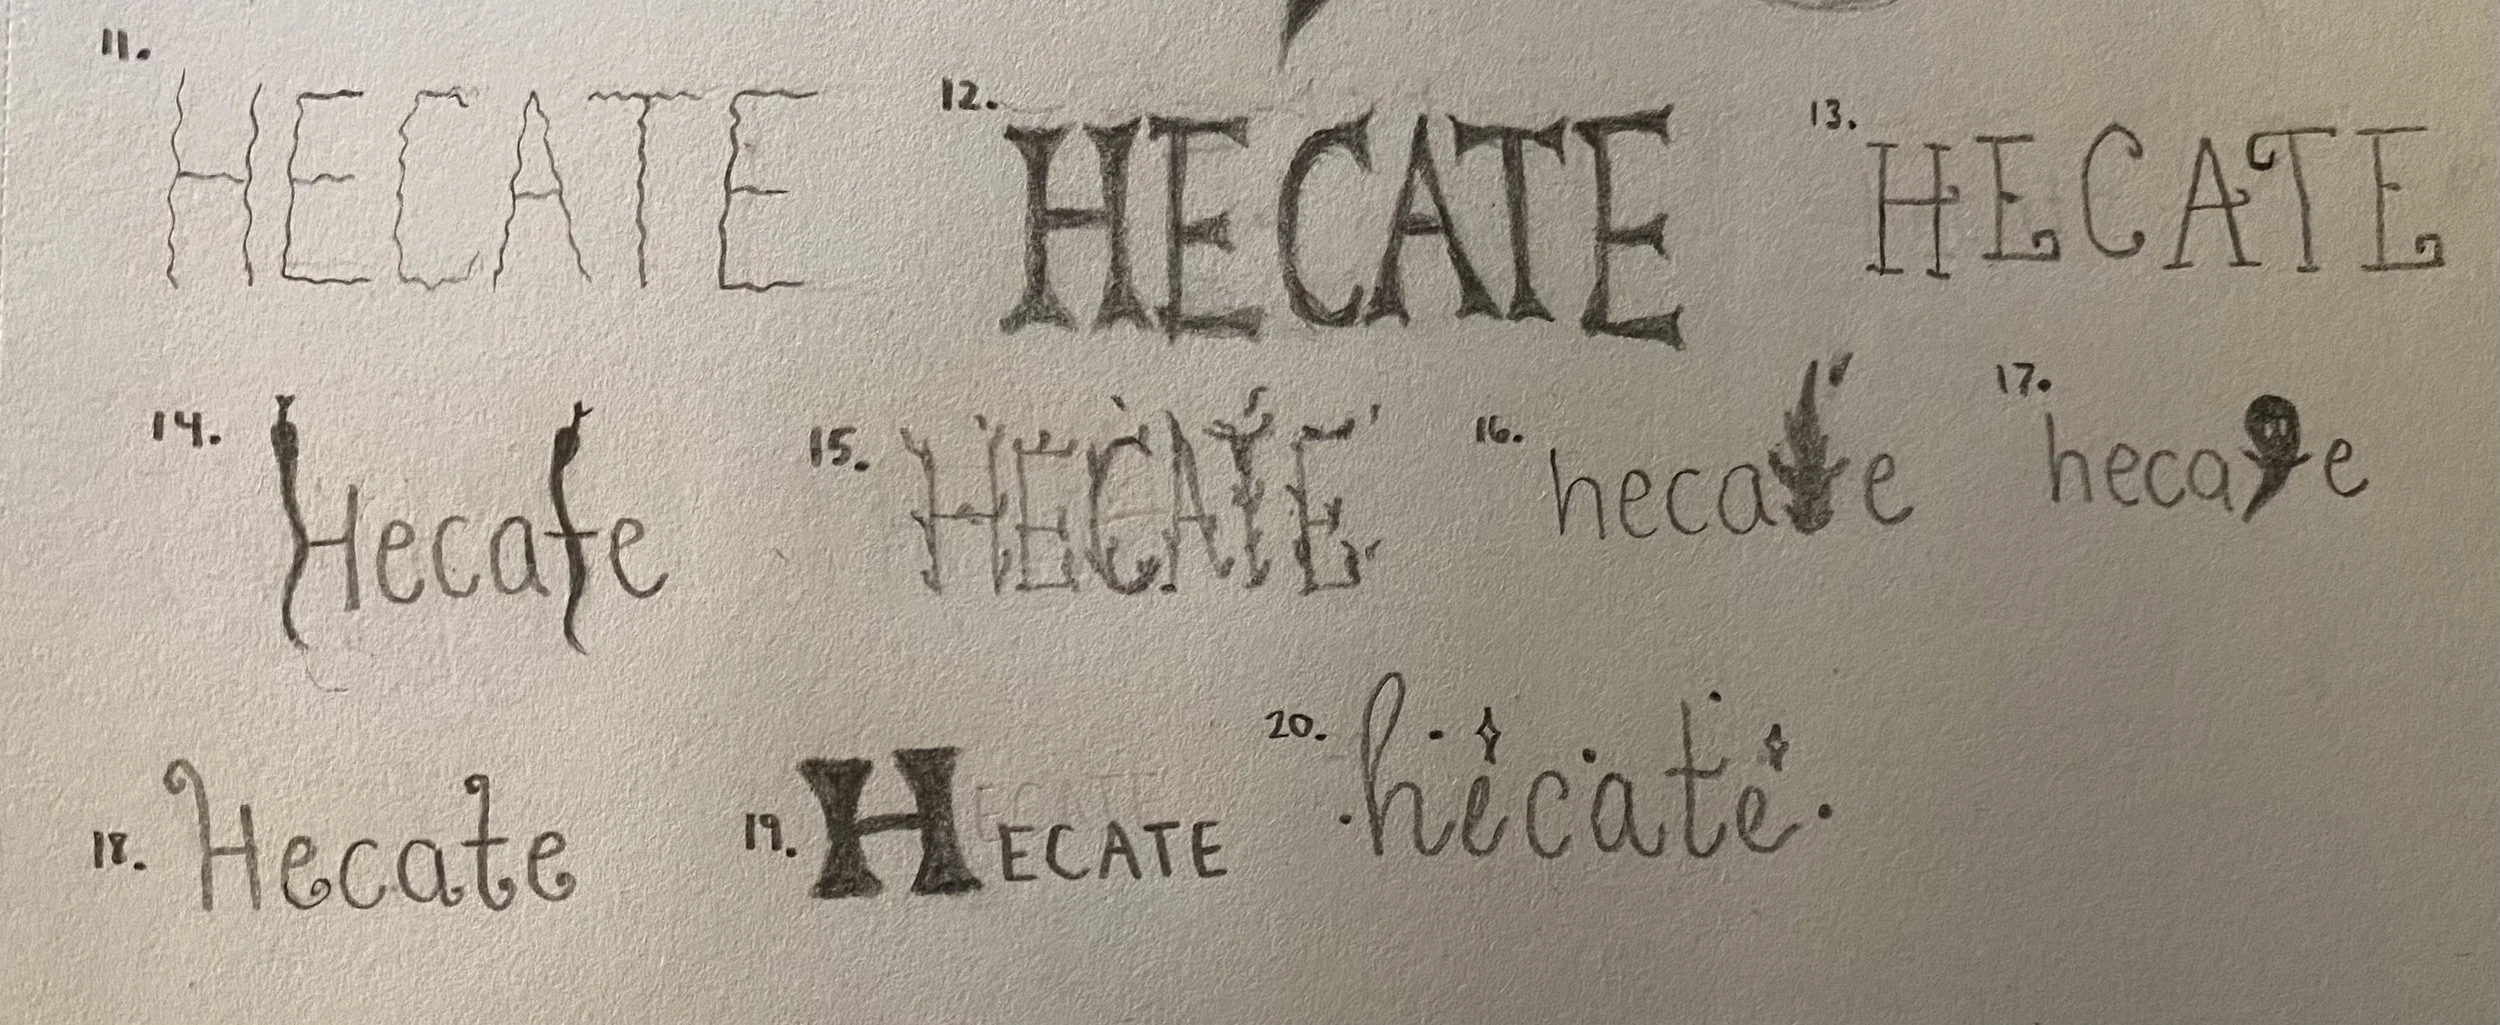 11. HECATE 12. HECATE 13. HECATE
14. Hecate 15. HECATE 16. hecate 17. hecate
18. Hecate 19. HECATE 20. hecate